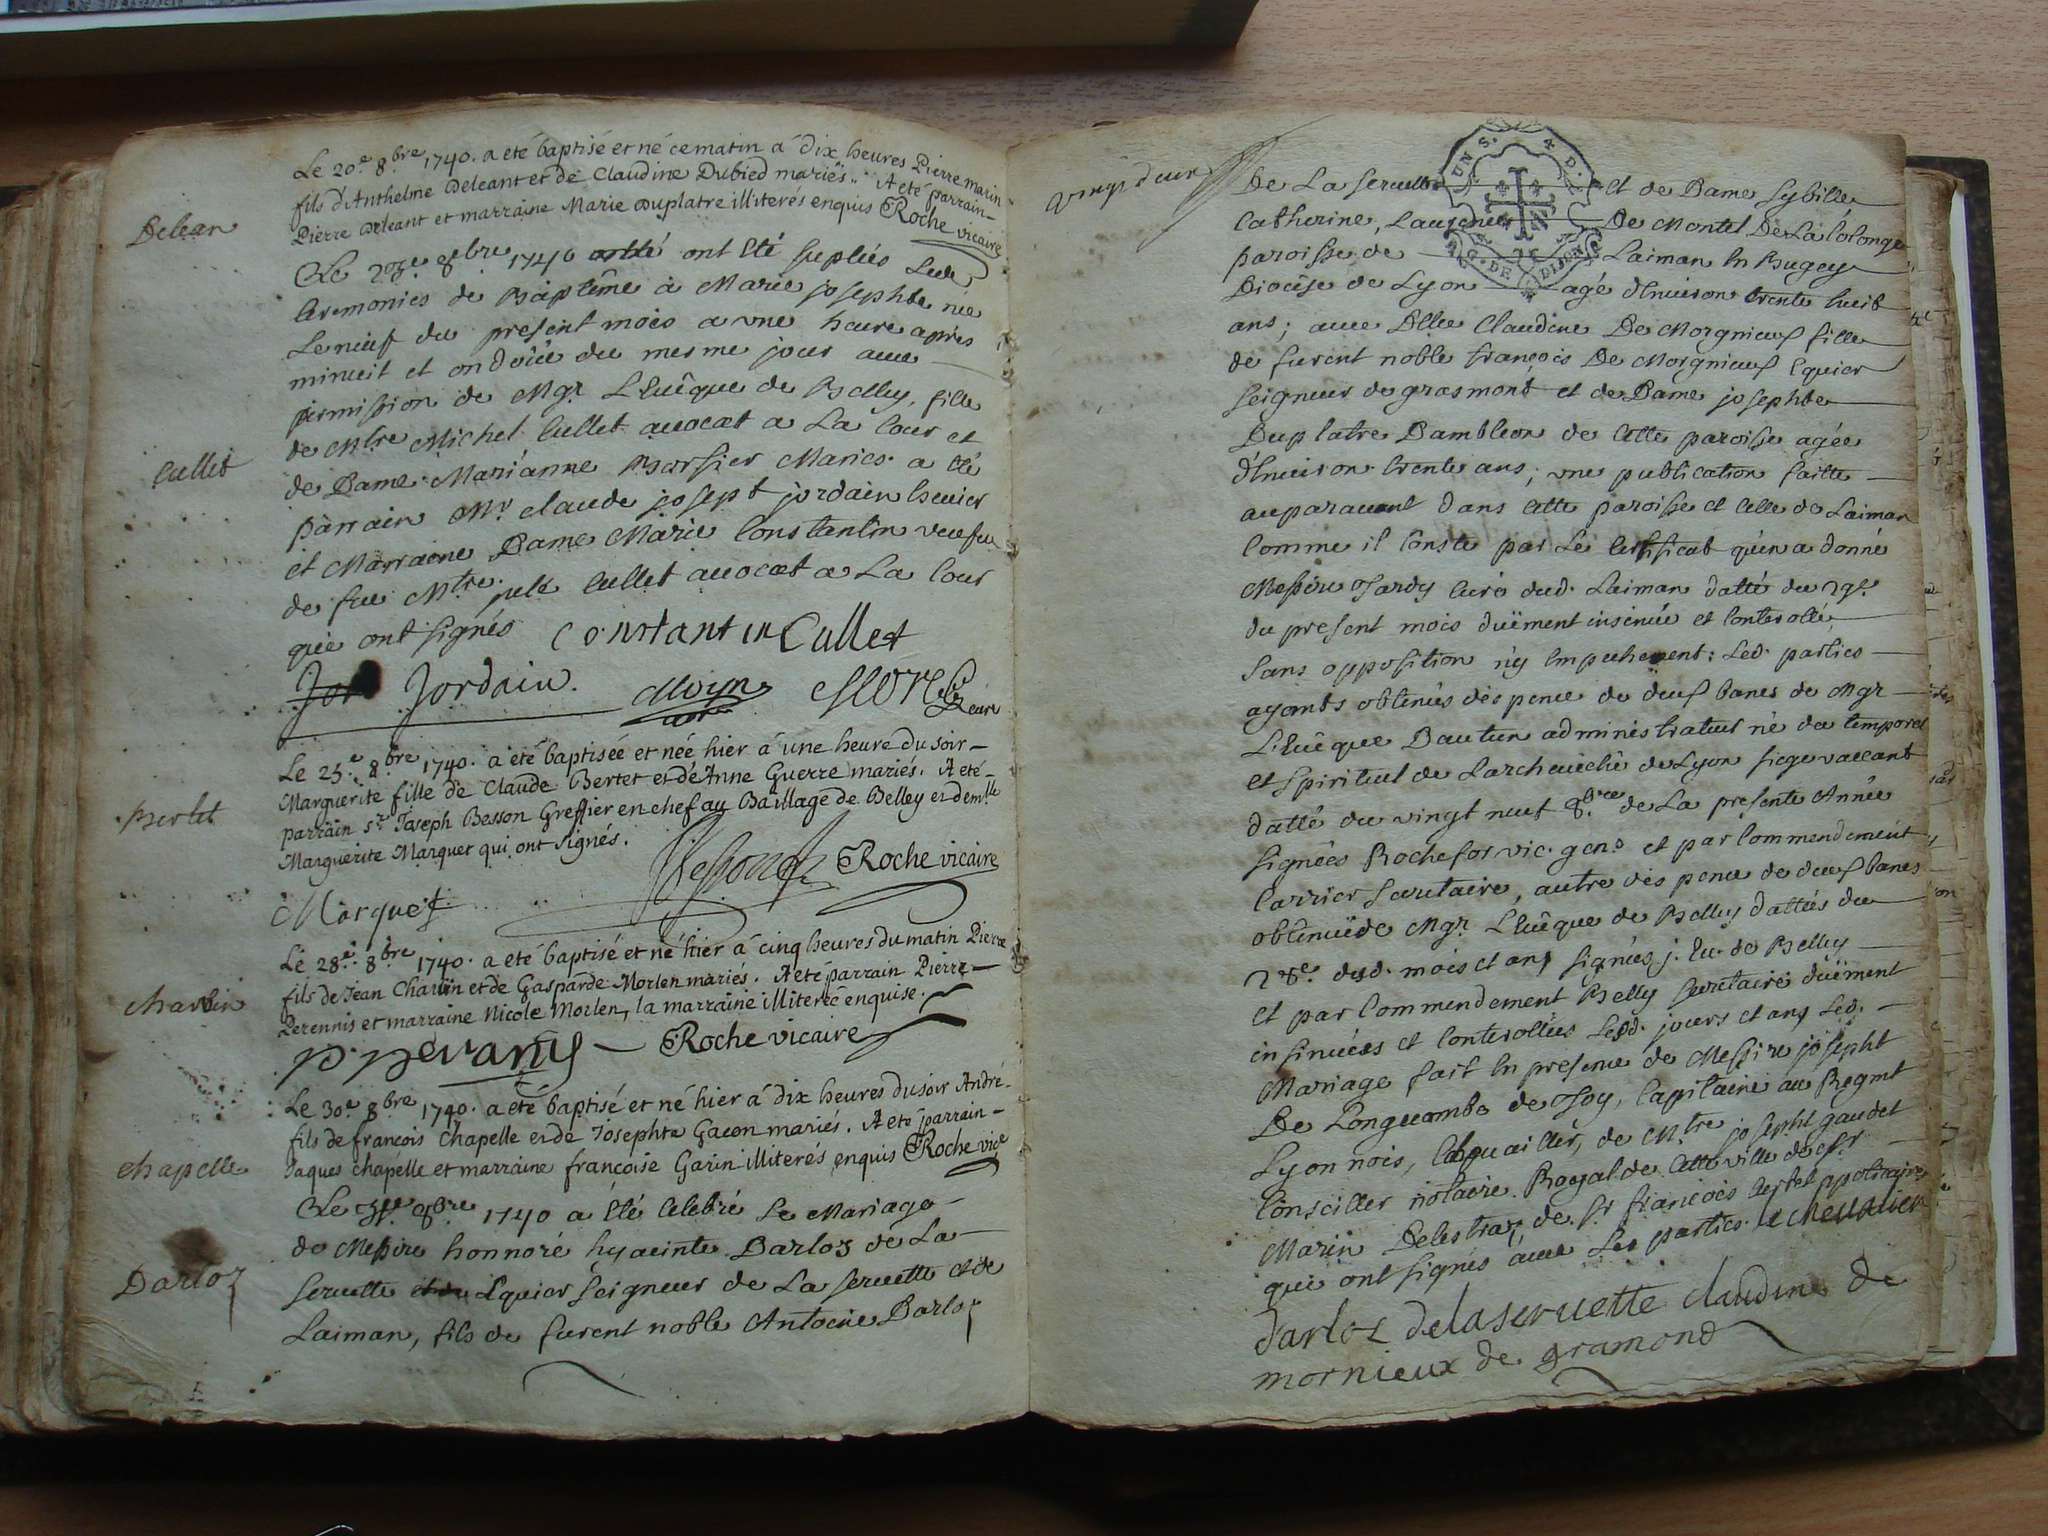 Delean
Le 20.e 8.bre 1740. a eté baptisé et né ce matin á dix heures Pierre marin
fils d'Anthelme Deleant et de Claudine Dubied mariés. A eté parrain
Pierre Deleant et marraine Marie Duplatre illiterés enquis Roche vicaire
Cullet
Le 8bre 1740 ont Eté supleés Lede
Ceremonies de Baptême a Marie josephte nee
Le neuf du present mois a une heure apres
minuit et ondoïée du mesme jour avec
permission de Mgr L'Evêque de Belley, fille
de Mtre Michel Cullet avocat a La Cour et
de Dame Marianne Maries. a été
parrain Mr claude josept jordain
et Marraine Dame Marie Constantin veufve
de feu Mtre. Cullet avocat a La Cour
qui ont signés Constantin Cullet
Jordain.
curé
Bertet
Le 25.e 8.bre 1740. a eté baptisée et née hier á une heure du soir
Marguerite fille de Claude Bertet et d'Anne Guerre mariés. A eté
parrain Sr. Joseph Besson Greffier en chef au Baillage de Belley et dem.lle
Marguerite Marquet qui ont signés.
Besson Roche vicaire
Marquet
Charvin
Le 28.e 8.bre 1740. a eté baptisé et né hier á cinq heures du matin Pierre
fils de Jean Charvin et de Gasparde Morlen mariés. A eté parrain Pierre
Perennis et marraine Nicole Morlen, la marraine illiterée enquise.
Roche vicaire
Chapelle
Le 30.e 8.bre 1740. a eté baptisé et né hier á dix heures du soir André
fils de françois Chapelle et de Josephte Gacon mariés. A eté parrain
Jaques chapelle et marraine françoise Garin illiterés enquis Roche vice
Darloz
Le 8bre 1740 a Eté Celebré Le Mariage
de Messire honnoré hyacinte Darloz de La
Servette Equier Seigneur de La Servette et de
Laiman, fils de furent noble Antoine Darloz
vingt deux
UN S. 4 D.
G. DE DIJON
De La Servette et de Dame Sybille
Catherine, De Montel De La Colonge
paroisse de Laiman En Bugey
Diocèse de Lyon agé d'Environ trente huit
ans; avec Dlle Claudine De Morgnieuf fille
de furent noble françois De Morgnieuf Equier
Seigneur de grasmont et de Dame josephte
Duplatre Dambleon de Cette paroisse agée
d'Environ trente ans, une publication faitte
auparavant dans Cette paroisse et Celle de Laiman
Comme il Conste par Le Certificat qu'en a donné
Messire Tardy Curé dud. Laiman datté du 29e
du present mois duëment insinüé et Controllé
Sans opposition n'y Empechement: Led. parties
ayants obtenües dispence de deuf bancs de Mgr
L'Evêque Dautun administrateur né du temporel
et Spirituel de Larchevêché de Lyon siege vaccant
datté du vingt neuf 8.bre de La presente Année
Signées Rochefor vic. gen. et par Commendement
Carrier Secretaire, autre dispence de deuf bancs
obtenüe de Mgr L'Evêque de Belley dattés du
28e dud. mois et an, signées j. Ev. de Belley
et par Commendement Belly Secretaire duëment
insinuées et Controllées Lesd. jours et an, Led.
Mariage fait En presence de Messire josepht
De Longecombe de Toy, Capitaine au Regmt
Lyonnois, de Mtre josepht gaudet
Conseiller notaire Royal de Cette ville de Sr
Marin Delestraz, de Sr françois
qui ont signés avec Les parties. Le Chevalier
darloz delaservette claudine de
mornieux de gramond